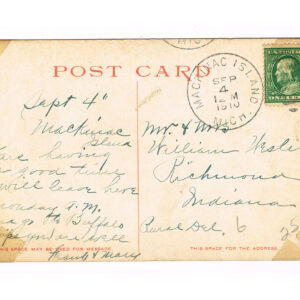 POST CARD
MACKINAC ISLAND
SEP
4
12 M
1910
MICH.
Sept 4"
Mackinac
Island
are having
a good time
will leave here
Monday P.M.
go to Buffalo
you are well
Frank & Mary
THIS SPACE MAY BE USED FOR MESSAGE
Mr. & Mrs
William
Richmond
Indiana
Rural Del. 6
THIS SPACE FOR THE ADDRESS.